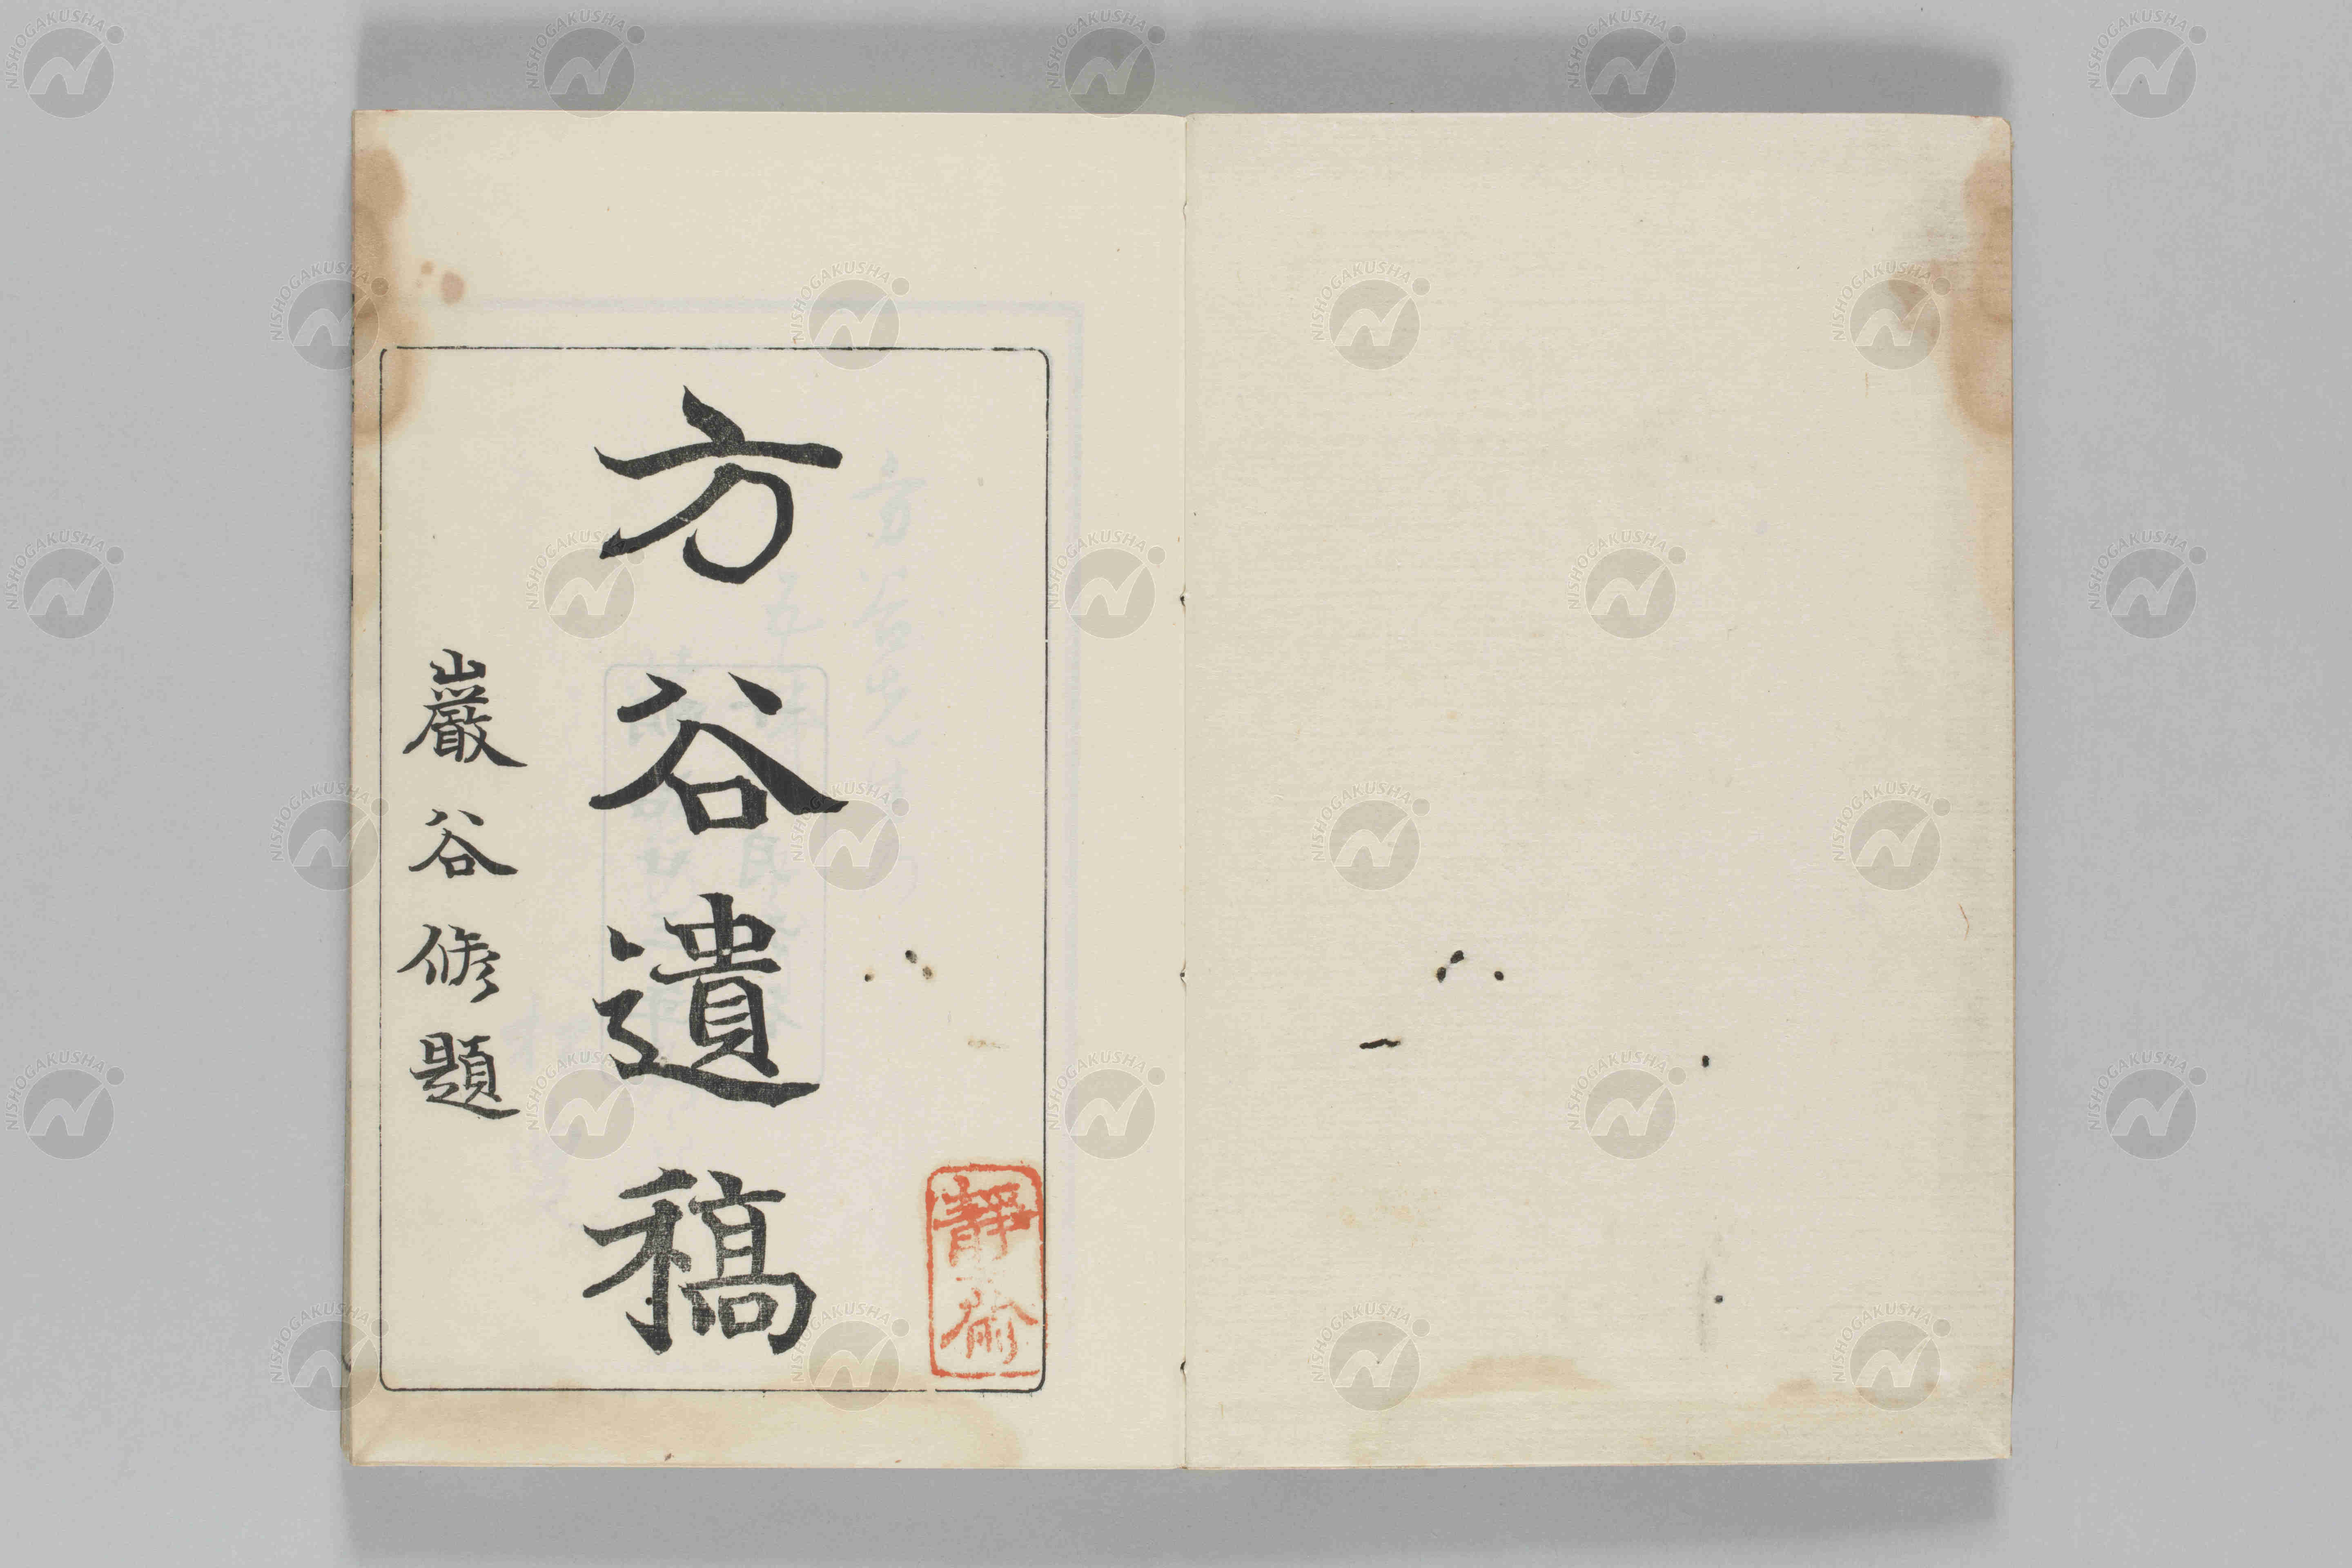 方谷遺稿
巖谷修題
靜
NISHOGAKUSHA